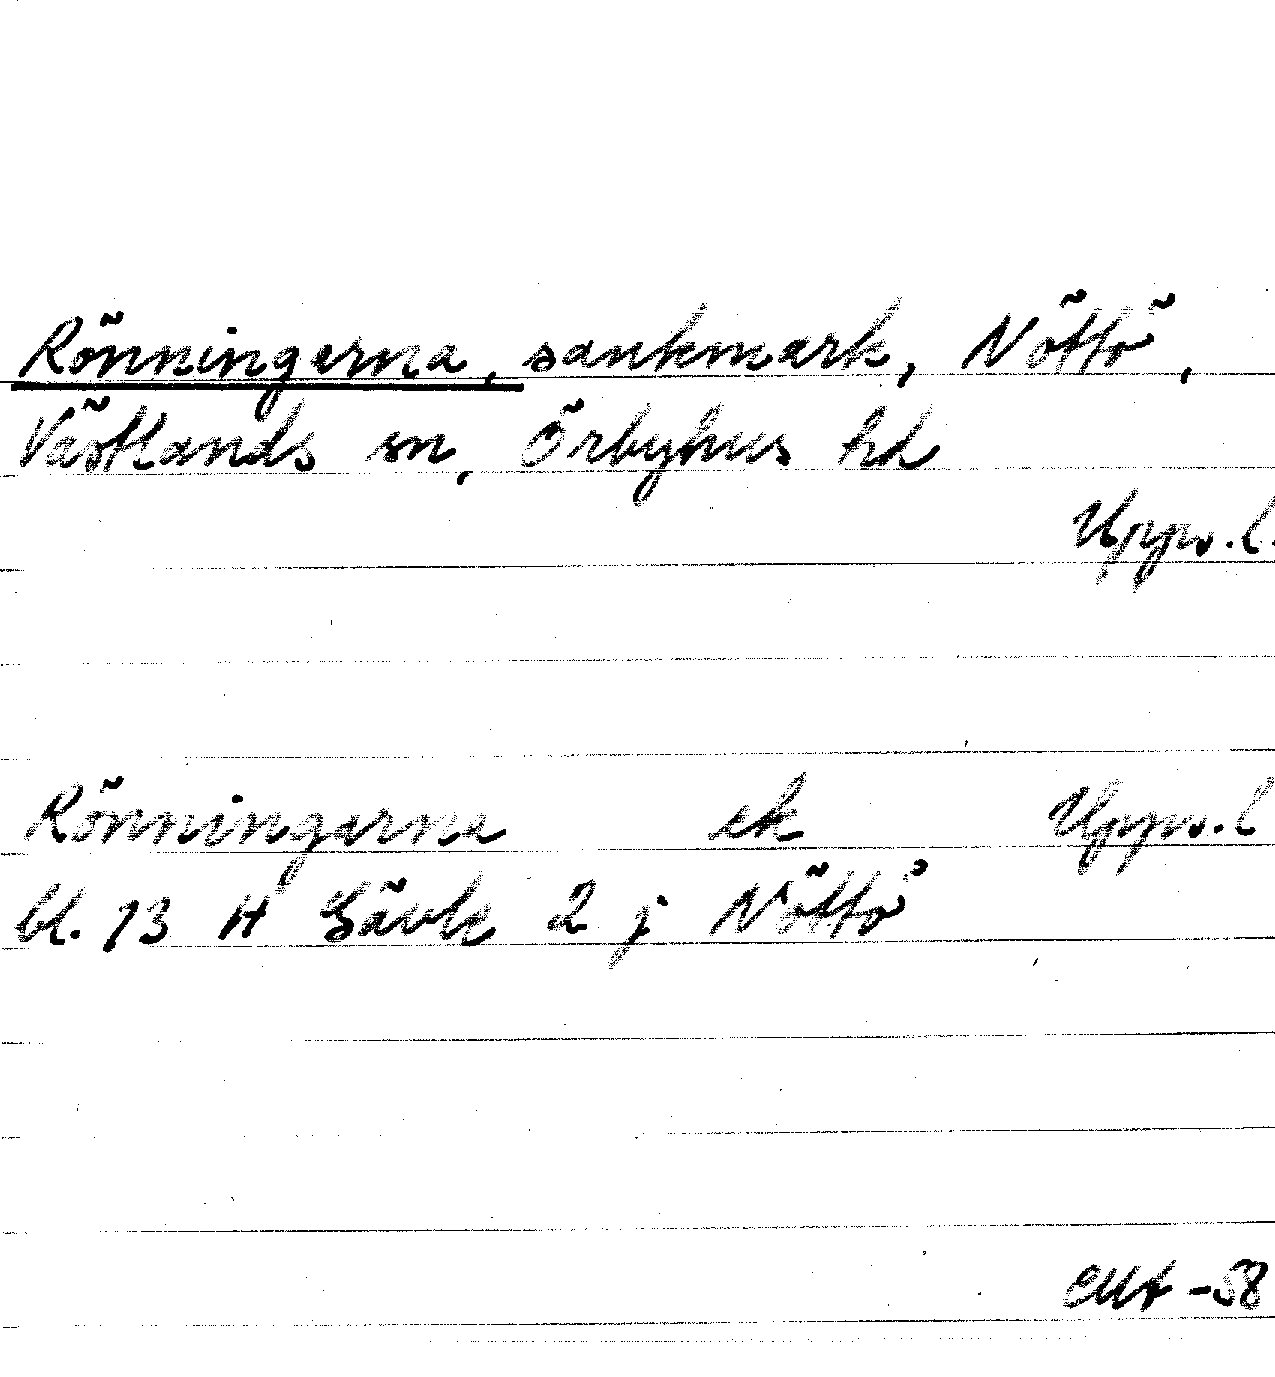 Rönningarna, sankmark, Nöttö,
Västlands sn, Örbyhus hd
Upps. l.
Rönningarna ek Upps. l
bl. 13 H Gävle 2 j Nöttö
-58